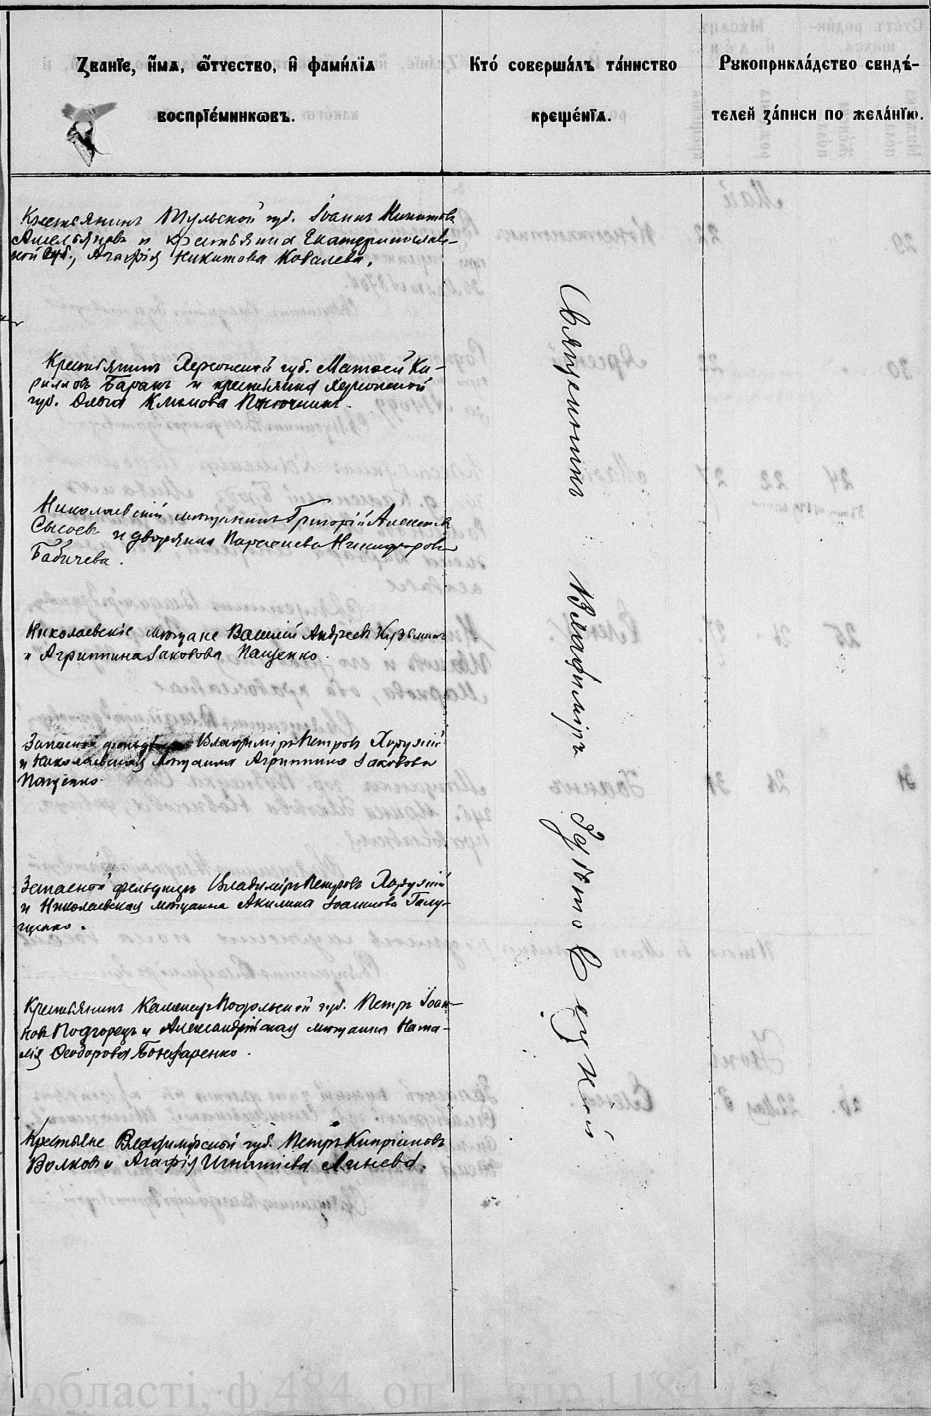 Званїе, и҆́мя, ѻ҆́тчество, и҆ фами́лїя
воспрїе́мникѡвъ.
Кто́ соверша́лъ та́инство
креще́нїя.
Рꙋкоприкла́дство свидѣ́-
телей за́писи по жела́нїю.
Крестьянинъ Тульской губ. Іоаннъ Никитовъ
Амельяновъ и крестьянка Екатеринослав-
ской губ., Агафія Никитова Ковалева.
Крестьянинъ Херсонской губ. Матѳей Ки-
рилловъ Баранъ и крестьянка Херсонской
губ. Ольга Климова
Николаевскій мѣщанинъ Григорій Алексѣевъ
Сысоевъ и дворянка Параскева Никифорова
Бабичева.
Николаевскіе мѣщане Василій Андреевъ Кузьминъ
и Агриппина Іаковова Пащенко.
Запасной фельдшеръ Владиміръ Петровъ Хоружій
и Николаевская мѣщанка Агриппина Іаковова
Пащенко.
Запасной фельдшеръ Владиміръ Петровъ Хоружій
и Николаевская мѣщанка Акилина Іоакимова Галу-
щенко.
Крестьянинъ Каменецъ Подольской губ. Петръ Іоан-
новъ Подгорецъ и Александрійская мѣщанка Ната-
лія Ѳеодорова Бондаренко.
Крестьяне Владимірской губ. Петръ Кипріановъ
Волковъ и Агафія Игнатіева Линева.
Священникъ Владиміръ
області, ф.484, оп.1, спр.1184